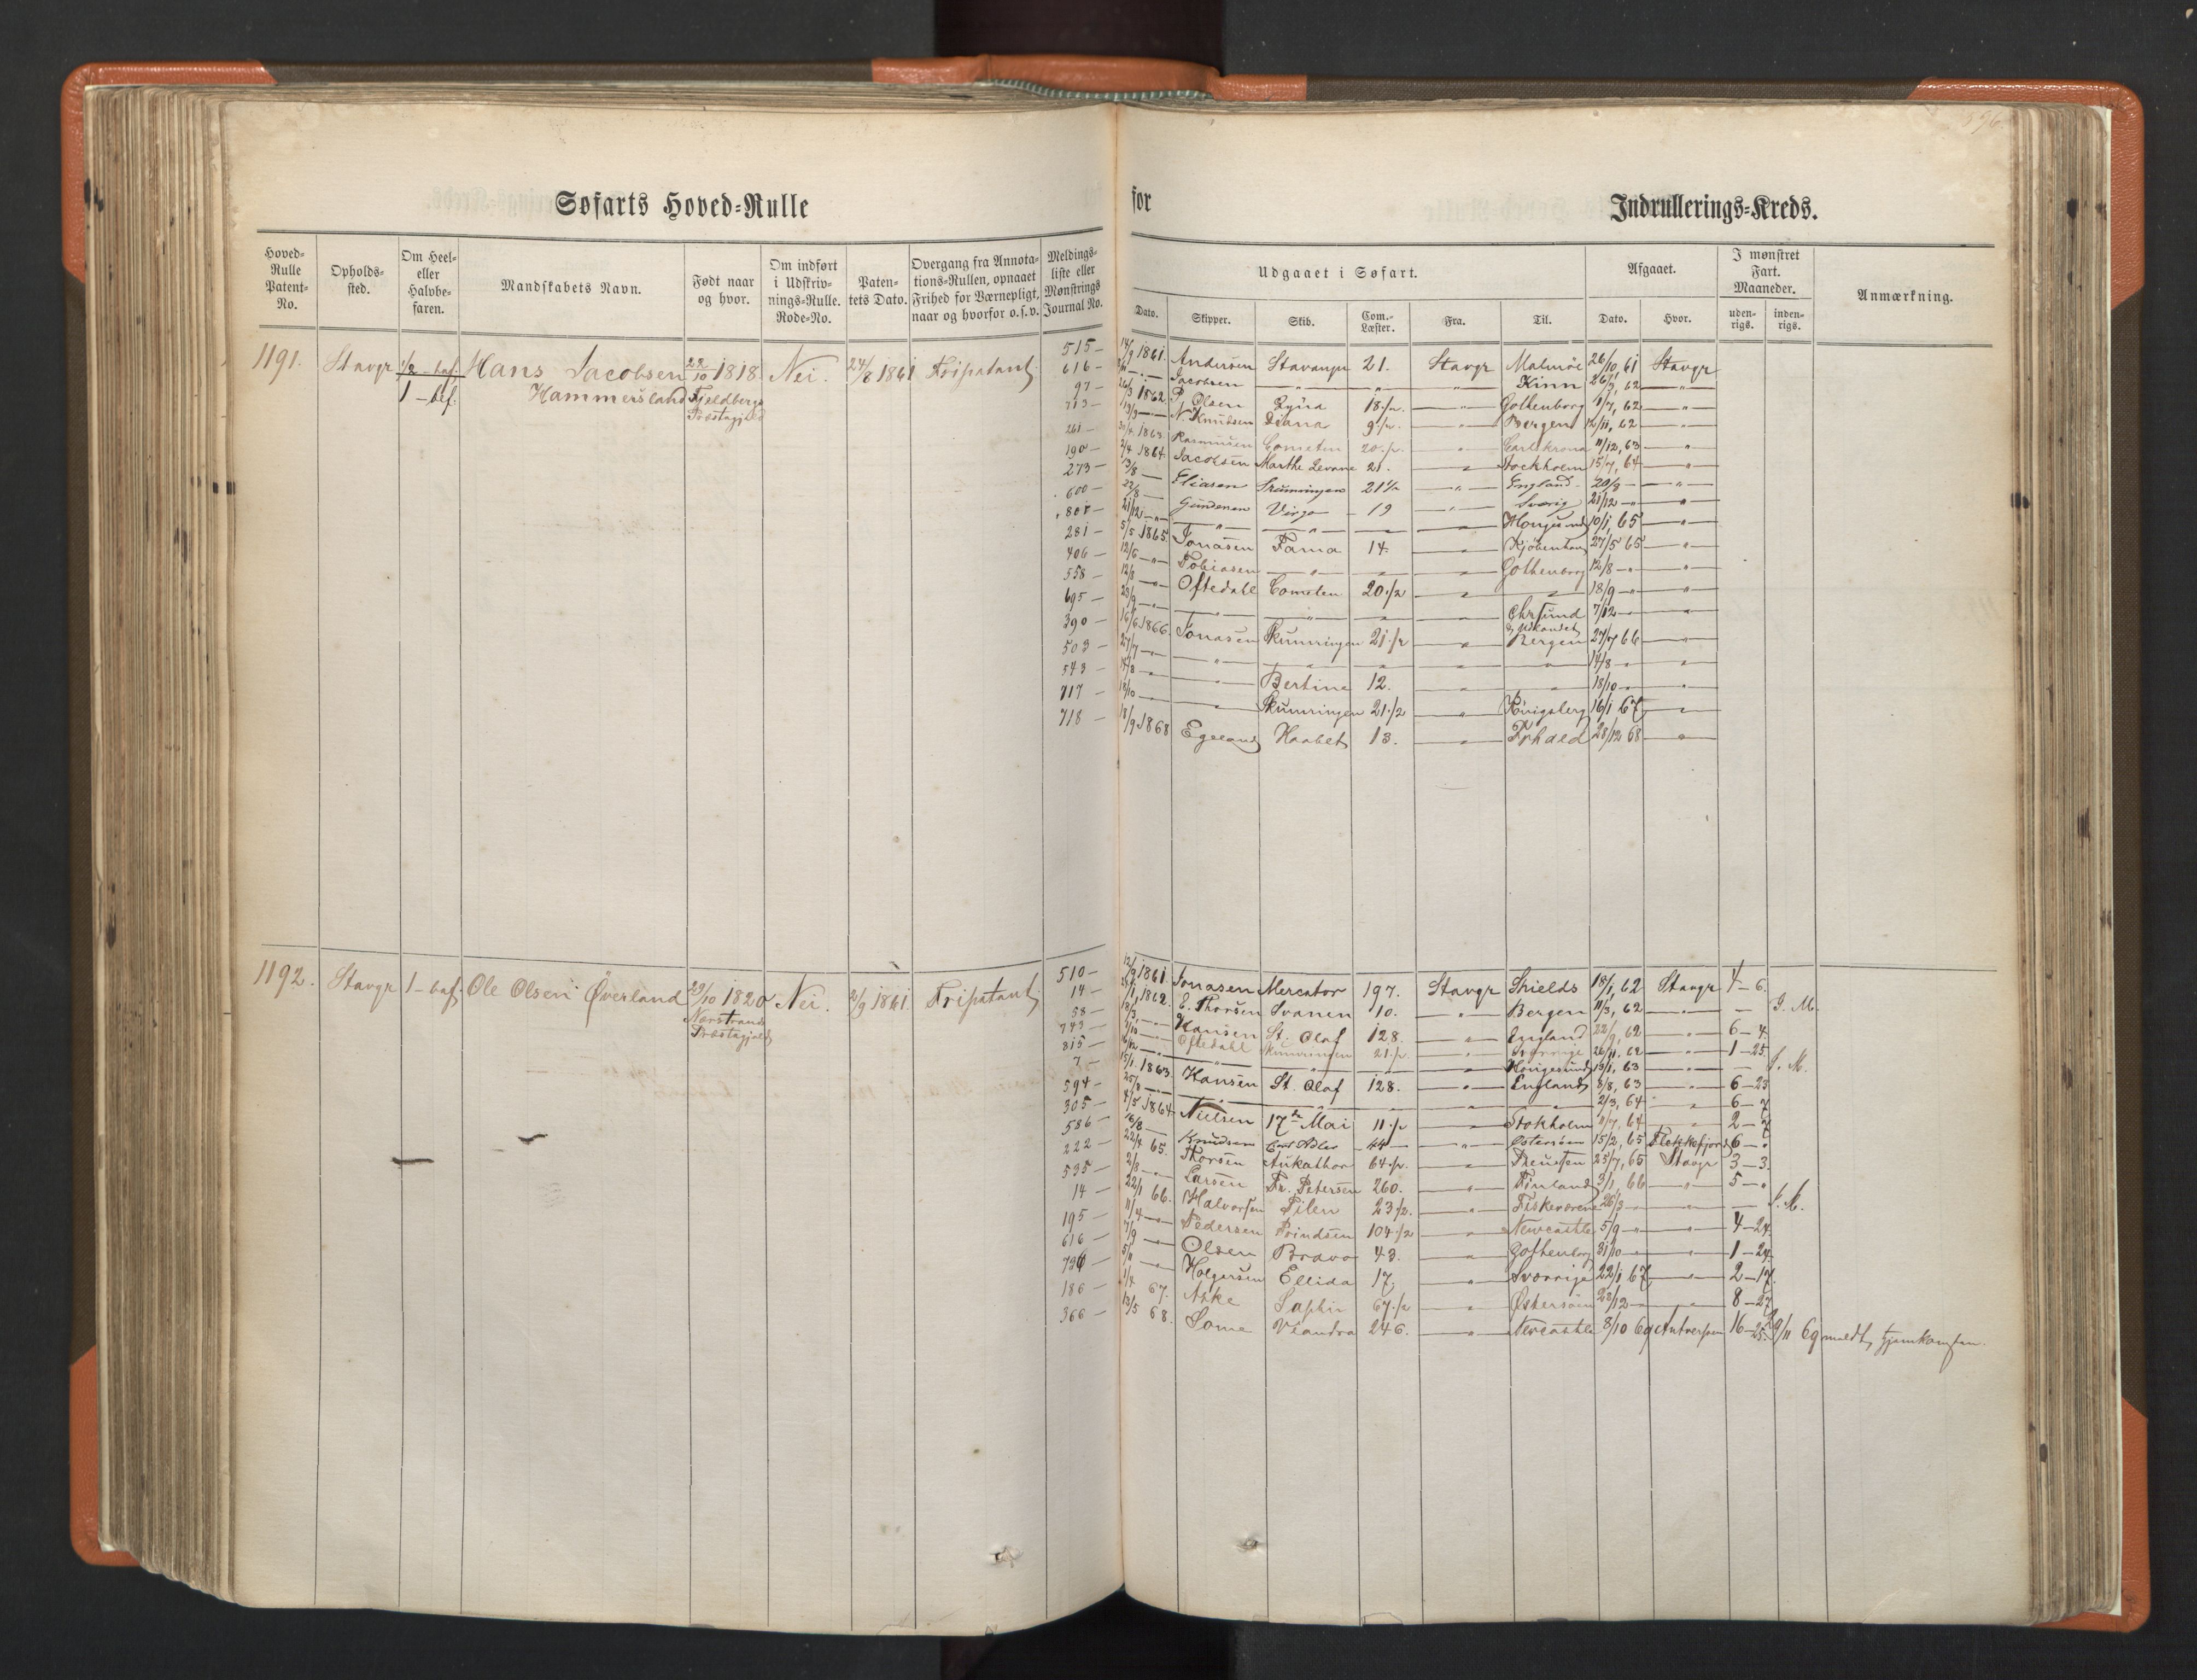 596
Søfarts Hoved=Rulle for Indrullerings=Kreds.
Hoved=Rulle Patent=No.
Opholds=sted.
Om Heel= eller Halvbe=faren.
Mandskabets Navn.
Født naar og hvor.
Om indført i Udskriv=nings=Rulle. Rode=No.
Paten=tets Dato.
Overgang fra Annota=tions=Rullen, opnaaet Frihed for Værnepligt, naar og hvorfor o.s.v.
Meldings=liste eller Mønstrings Journal No.
Udgaaet i Søfart.
Dato. Skipper. Skib. Com.=Læster. Fra. Til.
Afgaaet.
Dato. Hvor.
I mønstret Fart. Maaneder.
uden=rigs. inden=rigs.
Anmærkning.
1191. Stavgr 1/2 - bef. Hans Jacobsen 22/10 1818. Nei. 24/8 1861 Fripatent
1 - bef. Hammersland Fjeldberg Præstegjeld
515 - 14/9 1861. Andersen Stavanger 21. Stavgr Malmöe 26/10, 61 Stavgr
616 - Jacobsen " " " Kinn 26/3, 62 "
97 - 26/3 1862. P. Olsen Lyna 18 1/2. " Gothenborg 1/7, 62 "
713 - N. Knudsen Diana 9 1/2. " Bergen 12/11, 62 "
261 - 30/4 1863. Rasmusen Cometen 20 1/2. " Carlskrona 11/12, 63 "
190 - 2/4 1864. Jacobsen Marthe 21. " Stockholm 15/7, 64 "
273 - Eliasen Skumringen 21 1/2 " England 20/8 - "
600 - 22/8 - Gundersen Virgo 19 " Sverig 21/12 - "
801 - 21/12 - " " " " Haugesund 10/1, 65 "
281 - 5/5 1865. Jonasen Fama 14. " Kjøbenhavn 27/5 65 "
406 - 12/6 - Tobiasen " " " Gothenborg 12/8 - "
558 - 12/8 - Oftedahl Cometen 20 1/2 " " 18/9 - "
695 - 23/9 - " " " Chrsund 7/12 - "
390 - 16/6 1866. Jonasen Skumringen 21 1/2 " Bergen 27/7 66 "
503 - 27/7 - " " " " " 14/8 - "
543 - " Bertine 12. " " 18/10 - "
717 - 18/10 - " Skumringen 21 1/2 " Königsberg 16/1 67 "
718 - 18/9 1868 Egeland Haabet 13. " Frhald 28/12 68 "
1192. Stavgr 1 - bef. Ole Olsen Överland 29/10 1820 Nei. 2/9 1861. Fripatent
Nærstrand Præstegjeld
510 - 12/9 1861. Jonasen Mercator 197. Stavgr Shields 18/1, 62 Stavgr 4 - 6.
14 - 1862. E. Thorsen Svanen 10. " Bergen 11/3, 62 " - J. M.
58 - 18/3, - Hansen St. Olaf 128. " England 22/9, 62 " 6 - 4.
743 - Oftedahl Skumringen 21 1/2. " Sverrige 26/11, 62 " 1 - 25.
815 - " " " Haugesund 13/1, 63 " - J. M.
7 - 15/1 1863. Hansen St. Olaf 128. " England 8/8, 63 " 6 - 23
594 - 25/8 - " " " " " 2/3, 64 " 6 - 7
305 - 4/5 1864. Nielsen 17de Mai 11 1/2 " Stokholm 64 " 2 - 7
586 - 16/8 - Knudsen Carl Adler 44 " Østersøen 15/2, 65 Flekkefjord 6 - "
222 - 22/4 65. Thorsen 64 1/2. " Preusten 25/7, 65 Stavgr 3 - 3.
535 - 2/8 - Larsen Fr. Petersen 260. " Finland 3/1, 66 " 5 - "
14 - 22/1 66. Halvorsen Pilen 23 1/2. " Fiskeværene 26/3 - " - J. M.
195 - 11/4 - Pedersen Prindsen 104 1/2 " Newcastle 5/9 - " 4 - 24.
616 - 7/9 - Olsen Bravo 43. " Gothenborg 31/10 - " 1 - 24.
726 - 5/11 - Holgersen Ellida 17. " Sverrige 22/1 67 " 2 - 17.
186 - 1/4 67. Aske Saphir 67 1/2 " Østersøen 28/12 - " 8 - 27
366 - 13/5 68. Lome Viandra 246. " Newcastle 8/10 69 Antverpen 16 - 25. 9/11 69 meldt hjemkomsten.